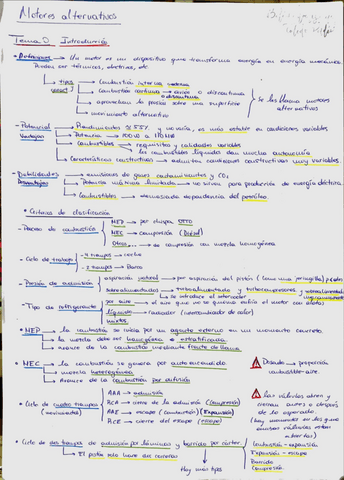 Motores alternativos
Tema 0: Introducción
• Definiciones → Un motor es un dispositivo que transforma energía en energía mecánica.
Pueden ser térmicos, eléctricos, etc.
→ tipos → Combustión interna
→ Combustión continua → o discontinua
→ aprovechan la presión sobre una superficie
→ movimiento alternativo
Se les llama motores alternativos
• Potencial Ventajas → Rendimientos 55% y no varía, es más estable en condiciones variables
→ Potencia → 100W a 110MW
→ Combustibles → requisitos y calidades variables
→ los combustibles líquidos dan mucha autonomía
→ Características constructivas → admiten condiciones constructivas muy variables.
• Debilidades Desventajas → emisiones de gases contaminantes y CO₂
→ Potencia máxima limitada → no sirven para producción de energía eléctrica.
→ Combustibles → demasiada dependencia del petróleo.
• Criterios de clasificación
- Proceso de combustión → MEP → por chispa OTTO
→ MEC → compresión (Diésel)
→ Otros → de compresión con mezcla homogénea
- Ciclo de trabajo → 4 tiempos → coche
→ 2 tiempos → barco
- Presión de admisión → aspiración natural → por aspiración del pistón (como una jeringuilla)
→ sobrealimentados → turboalimentado y turbocompresores y
→ se introduce el intercooler
- Tipo de refrigerante → por aire → el aire que no se quema enfría el motor con aletas
→ líquido → radiador (intercambiador de calor)
→ mixtos
• MEP → la combustión se inicia por un agente externo en un momento concreto.
→ la mezcla debe ser homogénea o estratificada
→ avance de la combustión mediante frente de llama
• MEC → la combustión se genera por autoencendido
→ mezcla heterogénea
→ Avance de la combustión por difusión
⚠ Dosado → proporción combustible-aire.
• Ciclo de cuatro tiempos → AAA → admisión
→ RCA → cierre de la admisión (compresión)
→ AAE → escape (combustión) (Expansión)
→ RCE → cierre del escape (escape)
⚠ las válvulas abren y cierran antes y después de lo esperado.
(hay momentos en los que ambas válvulas están abiertas)
• Ciclo de dos tiempos de admisión por lámina y barrido por cárter.
→ El pistón solo hace dos carreras
Hay más tipos
Combustión - expansión
Expansión - escape
Barrido
Compresión